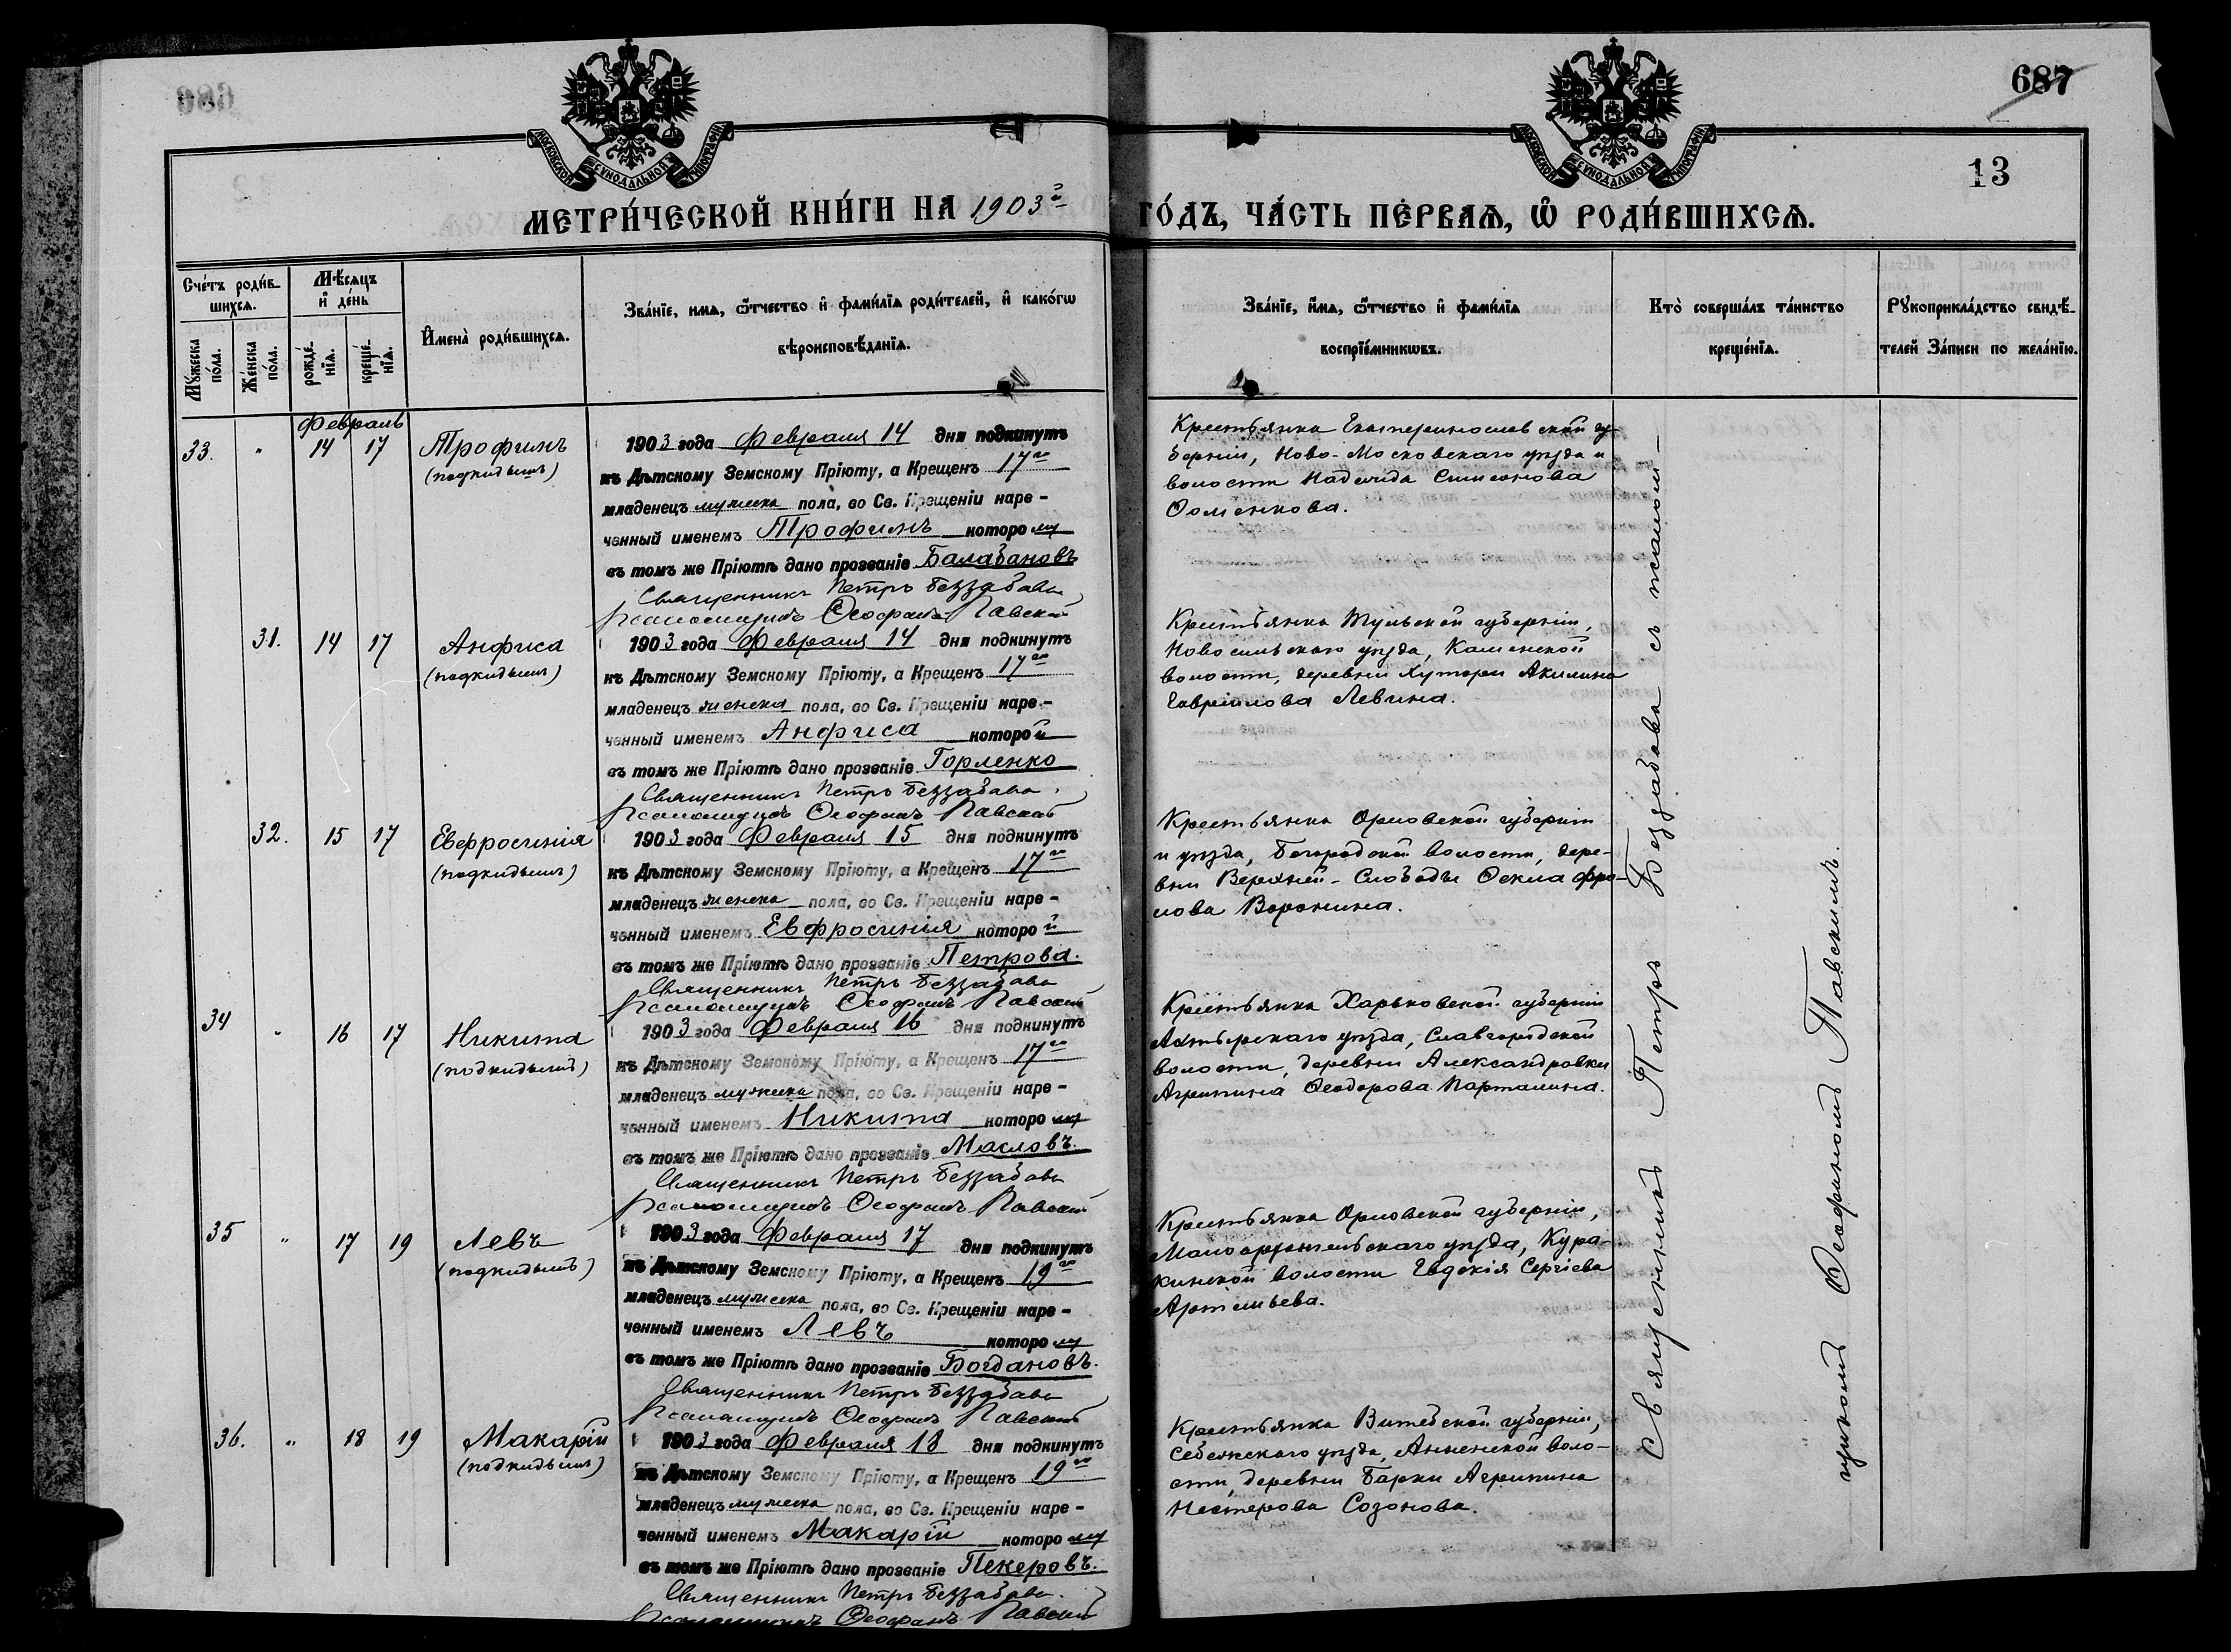 687
13
МОСКОВСКОЙ СѴНОДАЛЬНОЙ ТИПОГРАФІИ
МОСКОВСКОЙ СѴНОДАЛЬНОЙ ТИПОГРАФІИ
МЕТРИ́ЧЕСКОЙ КНИ́ГИ НА 1903й ГО́ДЪ, ЧА́СТЬ ПЕ́РВАѦ, Ѡ҆ РОДИ́ВШИХСѦ.
Сче́тъ роди́в-
шихсѧ.
Мѹ́жеска по́ла.
Же́нска по́ла.
Мѣ́сѧцъ
и҆ де́нь
рожде́-нїѧ.
креще́-нїѧ.
И҆мена̀ роди́вшихсѧ.
Зва́нїе, и҆мѧ, ѻ҆́тчество и҆ фами́лїѧ роди́телей, и҆ како́гѡ
вѣроисповѣ́данїѧ.
Зва́нїе, и҆́мѧ, ѻ҆́тчество и҆ фами́лїѧ
воспрїе́мникѡвъ.
Кто̀ соверша́лъ та́инство
креще́нїѧ.
Рѹкоприкла́дство свидѣ́-
телей За́писи по жела́нїю.
Февраль
33. " 14 17 Трофимъ
(подкидышъ)
1903 года Февраля 14 дня подкинутъ
къ Дѣтскому Земскому Пріюту, а Крещенъ 17го
младенецъ мужеска пола, во Св. Крещеніи наре-
ченный именемъ Трофимъ которому
въ томъ же Пріютѣ дано прозваніе Балабановъ
Священникъ Петръ Беззабава
Псаломщикъ Ѳеофанъ Павскій
Крестьянка Екатеринославской гу-
берніи, Ново-Московскаго уѣзда и
волости Надежда Симеонова
31. 14 17 Анфиса
(подкидышъ)
1903 года Февраля 14 дня подкинутъ
къ Дѣтскому Земскому Пріюту, а Крещенъ 17го
младенецъ женска пола, во Св. Крещеніи наре-
ченный именемъ Анфиса которой
въ томъ же Пріютѣ дано прозваніе Горленко
Священникъ Петръ Беззабава.
Псаломщикъ Ѳеофанъ Павскій
Крестьянка Тульской губерніи,
Новосильскаго уѣзда, Каменской
волости, деревни Хутори Акилина
Гавріилова Левина.
32. 15 17 Евфросинія
(подкидышъ)
1903 года Февраля 15 дня подкинутъ
къ Дѣтскому Земскому Пріюту, а Крещенъ 17го
младенецъ женска пола, во Св. Крещеніи наре-
ченный именемъ Евфросинія которой
въ томъ же Пріютѣ дано прозваніе Петрова.
Священникъ Петръ Беззабава
Псаломщикъ Ѳеофанъ Павскій
Крестьянка Орловской губерніи
и уѣзда, Богородской волости, дере-
вни Верхней-Слободы Ѳекла Фро-
лова Воронина.
34 " 16 17 Никита
(подкидышъ)
1903 года Февраля 16 дня подкинутъ
къ Дѣтскому Земскому Пріюту, а Крещенъ 17го
младенецъ мужеска пола, во Св. Крещеніи наре-
ченный именемъ Никита которому
въ томъ же Пріютѣ дано прозваніе Масловъ.
Священникъ Петръ Беззабава
Псаломщикъ Ѳеофанъ Павскій
Крестьянка Харьковской губерніи
Ахтырскаго уѣзда, Славгородской
волости, деревни Александровки
Агрипина Ѳеодорова Парталина.
35 " 17 19 Левъ
(подкидышъ)
1903 года Февраля 17 дня подкинутъ
къ Дѣтскому Земскому Пріюту, а Крещенъ 19го
младенецъ мужеска пола, во Св. Крещеніи наре-
ченный именемъ Левъ которому
въ томъ же Пріютѣ дано прозваніе Богдановъ.
Священникъ Петръ Беззабава
Псаломщикъ Ѳеофанъ Павскій
Крестьянка Орловской губерніи,
Малоархангельскаго уѣзда, Кура-
кинской волости Евдокія Сергіева
Артемьева.
36. " 18 19 Макарій
(подкидышъ)
1903 года Февраля 18 дня подкинутъ
къ Дѣтскому Земскому Пріюту, а Крещенъ 19го
младенецъ мужеска пола, во Св. Крещеніи наре-
ченный именемъ Макарій которому
въ томъ же Пріютѣ дано прозваніе Пекеровъ.
Священникъ Петръ Беззабава.
Псаломщикъ Ѳеофанъ Павскій
Крестьянка Витебской губерніи,
Себежскаго уѣзда, Анненской воло-
сти, деревни Барки Агрипина
Нестерова Созонова.
Священникъ Петръ Беззабава съ псалом-
щикомъ Ѳеофаномъ Павскимъ.